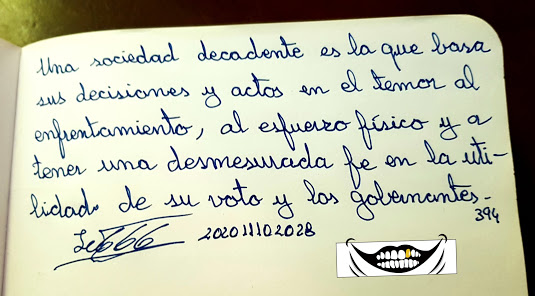 Una sociedad decadente es la que basa
sus decisiones y actos en el temor al
enfrentamiento, al esfuerzo físico y a
tener una desmesurada fe en la uti-
lidad de su voto y los gobernantes.
394
202011102028